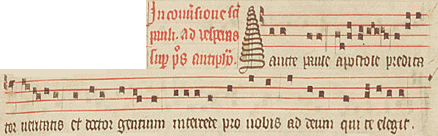 In ꝯuersione sci
pauli. ad vesperas
sup ps antiph.
Sancte paule apostole predica
tor ueritatis et doctor gentium intercede pro nobis ad deum qui te elegit.